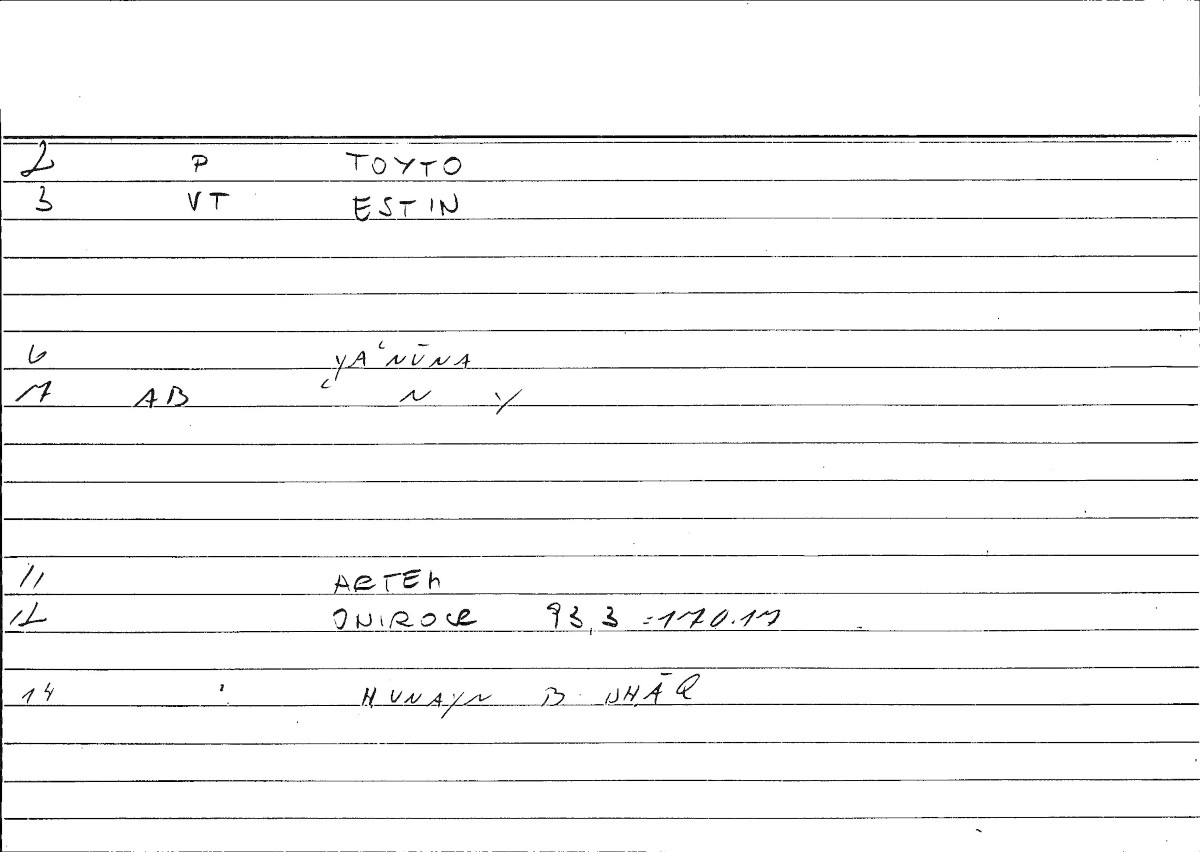 2 P TOYTO
3 VT ESTIN
6 YAʿNŪNA
7 AB ʿ N Y
11 ARTEM
12 ONIROCR 93,3 =170.17
14 HUNAYN B ISHĀQ